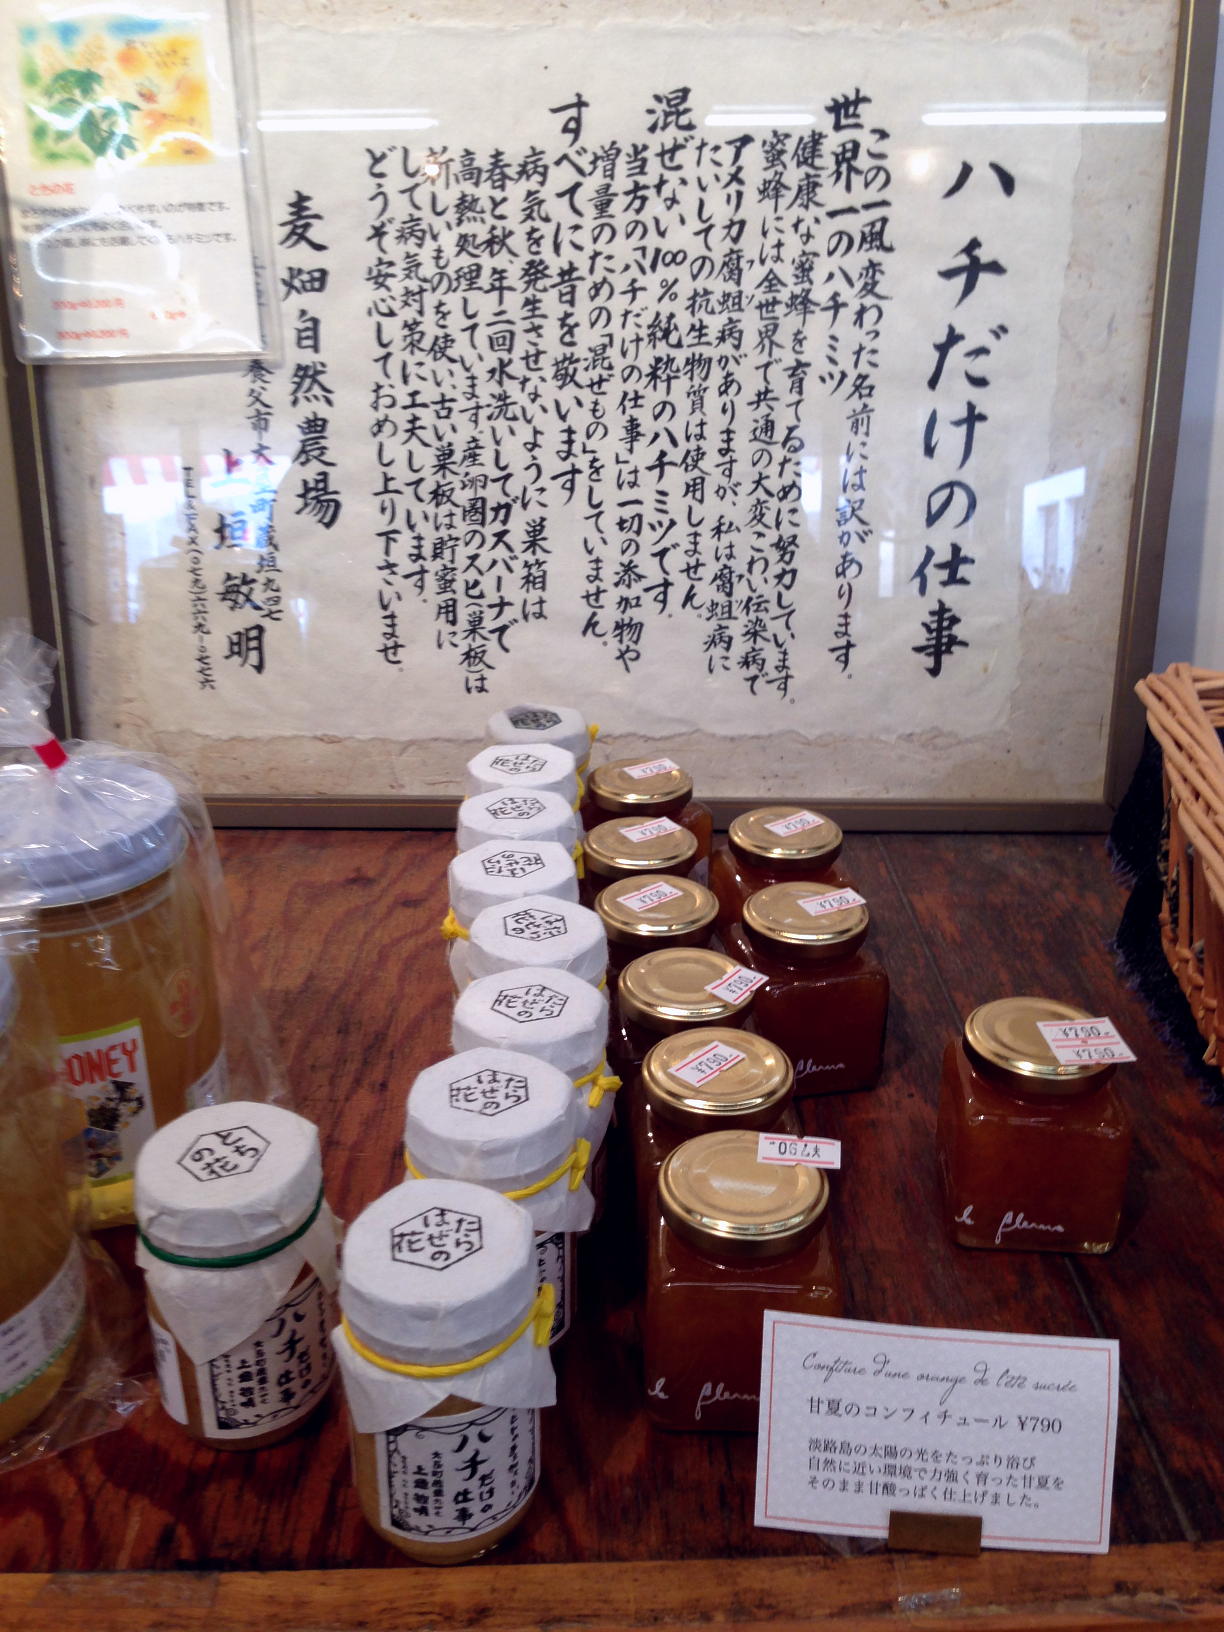 ハチだけの仕事
この一風変わった名前には訳があります。
世界一のハチミツ
健康な蜜蜂を育てるために努力しています。
蜜蜂には全世界で共通の大変こわい伝染病で
アメリカ腐蛆病がありますが、私は腐蛆病に
たいしての抗生物質は使用しません。
混ぜない100%純粋のハチミツです。
当方の「ハチだけの仕事」は一切の添加物や
増量のための「混ぜもの」をしていません。
すべてに昔を敬います
病気を発生させないように巣箱は
春と秋、年二回水洗いしてガスバーナで
高熱処理しています。産卵圏のスヒ(巣板)は
新しいものを使い、古い巣板は貯蜜用に
して病気対策に工夫しています。
どうぞ安心しておめし上り下さいませ。
麦畑自然農場
養父市大屋町蔵垣九四七
上垣敏明
TEL&FAX(〇七九)六六九-〇七七六
とちの花
HONEY
とちの花
たらはぜの花
たらはぜの花
たらはぜの花
たらはぜの花
たらはぜの花
たらはぜの花
たらはぜの花
ハチだけの仕事
上垣敏明
ハチだけの仕事
上垣敏明
¥790-
¥790-
¥790-
¥790-
¥790-
¥790-
¥790-
¥790-
¥790-
¥790-
Confiture d'une orange de l'été sucrée
甘夏のコンフィチュール ¥790
淡路島の太陽の光をたっぷり浴び
自然に近い環境で力強く育った甘夏を
そのまま甘酸っぱく仕上げました。